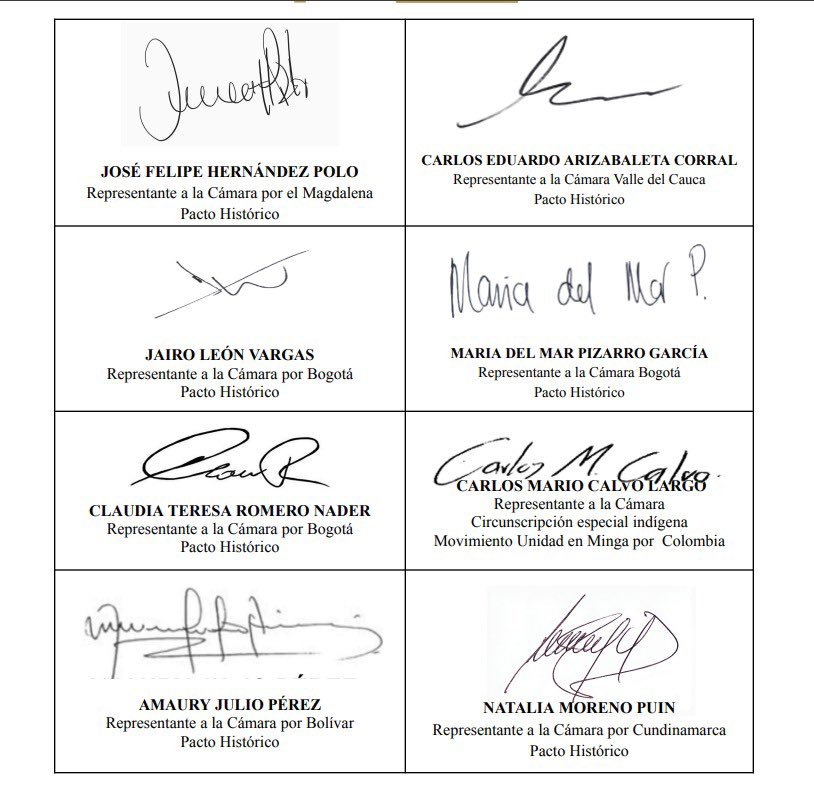 JOSÉ FELIPE HERNÁNDEZ POLO
Representante a la Cámara por el Magdalena
Pacto Histórico
CARLOS EDUARDO ARIZABALETA CORRAL
Representante a la Cámara Valle del Cauca
Pacto Histórico
JAIRO LEÓN VARGAS
Representante a la Cámara por Bogotá
Pacto Histórico
Maria del Mar P.
MARIA DEL MAR PIZARRO GARCÍA
Representante a la Cámara Bogotá
Pacto Histórico
CLAUDIA TERESA ROMERO NADER
Representante a la Cámara por Bogotá
Pacto Histórico
Carlos M. Calvo.
CARLOS MARIO CALVO LARGO
Representante a la Cámara
Circunscripción especial indígena
Movimiento Unidad en Minga por Colombia
AMAURY JULIO PÉREZ
Representante a la Cámara por Bolívar
Pacto Histórico
NATALIA MORENO PUIN
Representante a la Cámara por Cundinamarca
Pacto Histórico